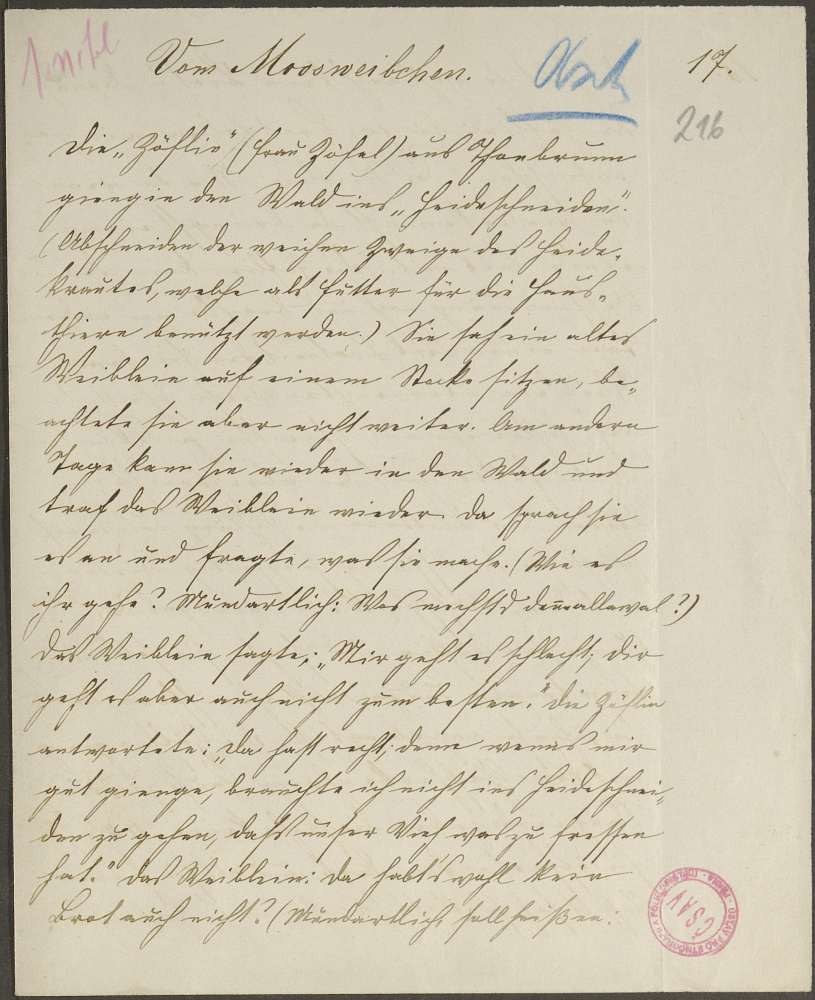 Vom Moosweibchen.
17.
216
Die „Zöflin" (Frau Zöfel) aus Thonbrunn
gieng in den Wald ins „Heideschneiden".
(Abschneiden der weichen Zweige des Heide-
krautes, welche als Futter für die Haus-
thiere benützt werden.) Sie sah ein altes
Weiblein auf einem Stocke sitzen, be-
achtete sie aber nicht weiter. Am andern
Tage kam sie wieder in den Wald und
traf das Weiblein wieder. Da sprach sie
es an und fragte, was sie mache. (Wie es
ihr gehe? Mundartlich: Wos mechst d denn allawal?)
Das Weiblein sagte: „Mir geht es schlecht; dir
geht es aber auch nicht zum besten." Die Zöflin
antwortete: „Da hast recht; denn wenns mir
gut gienge, brauchte ich nicht ins Heideschnei-
den zu gehen, dass unser Vieh was zu fressen
hat." Das Weiblein: Da habt's wohl kein
Brot auch nicht? (Mundartlich soll heißen:
ČSAV